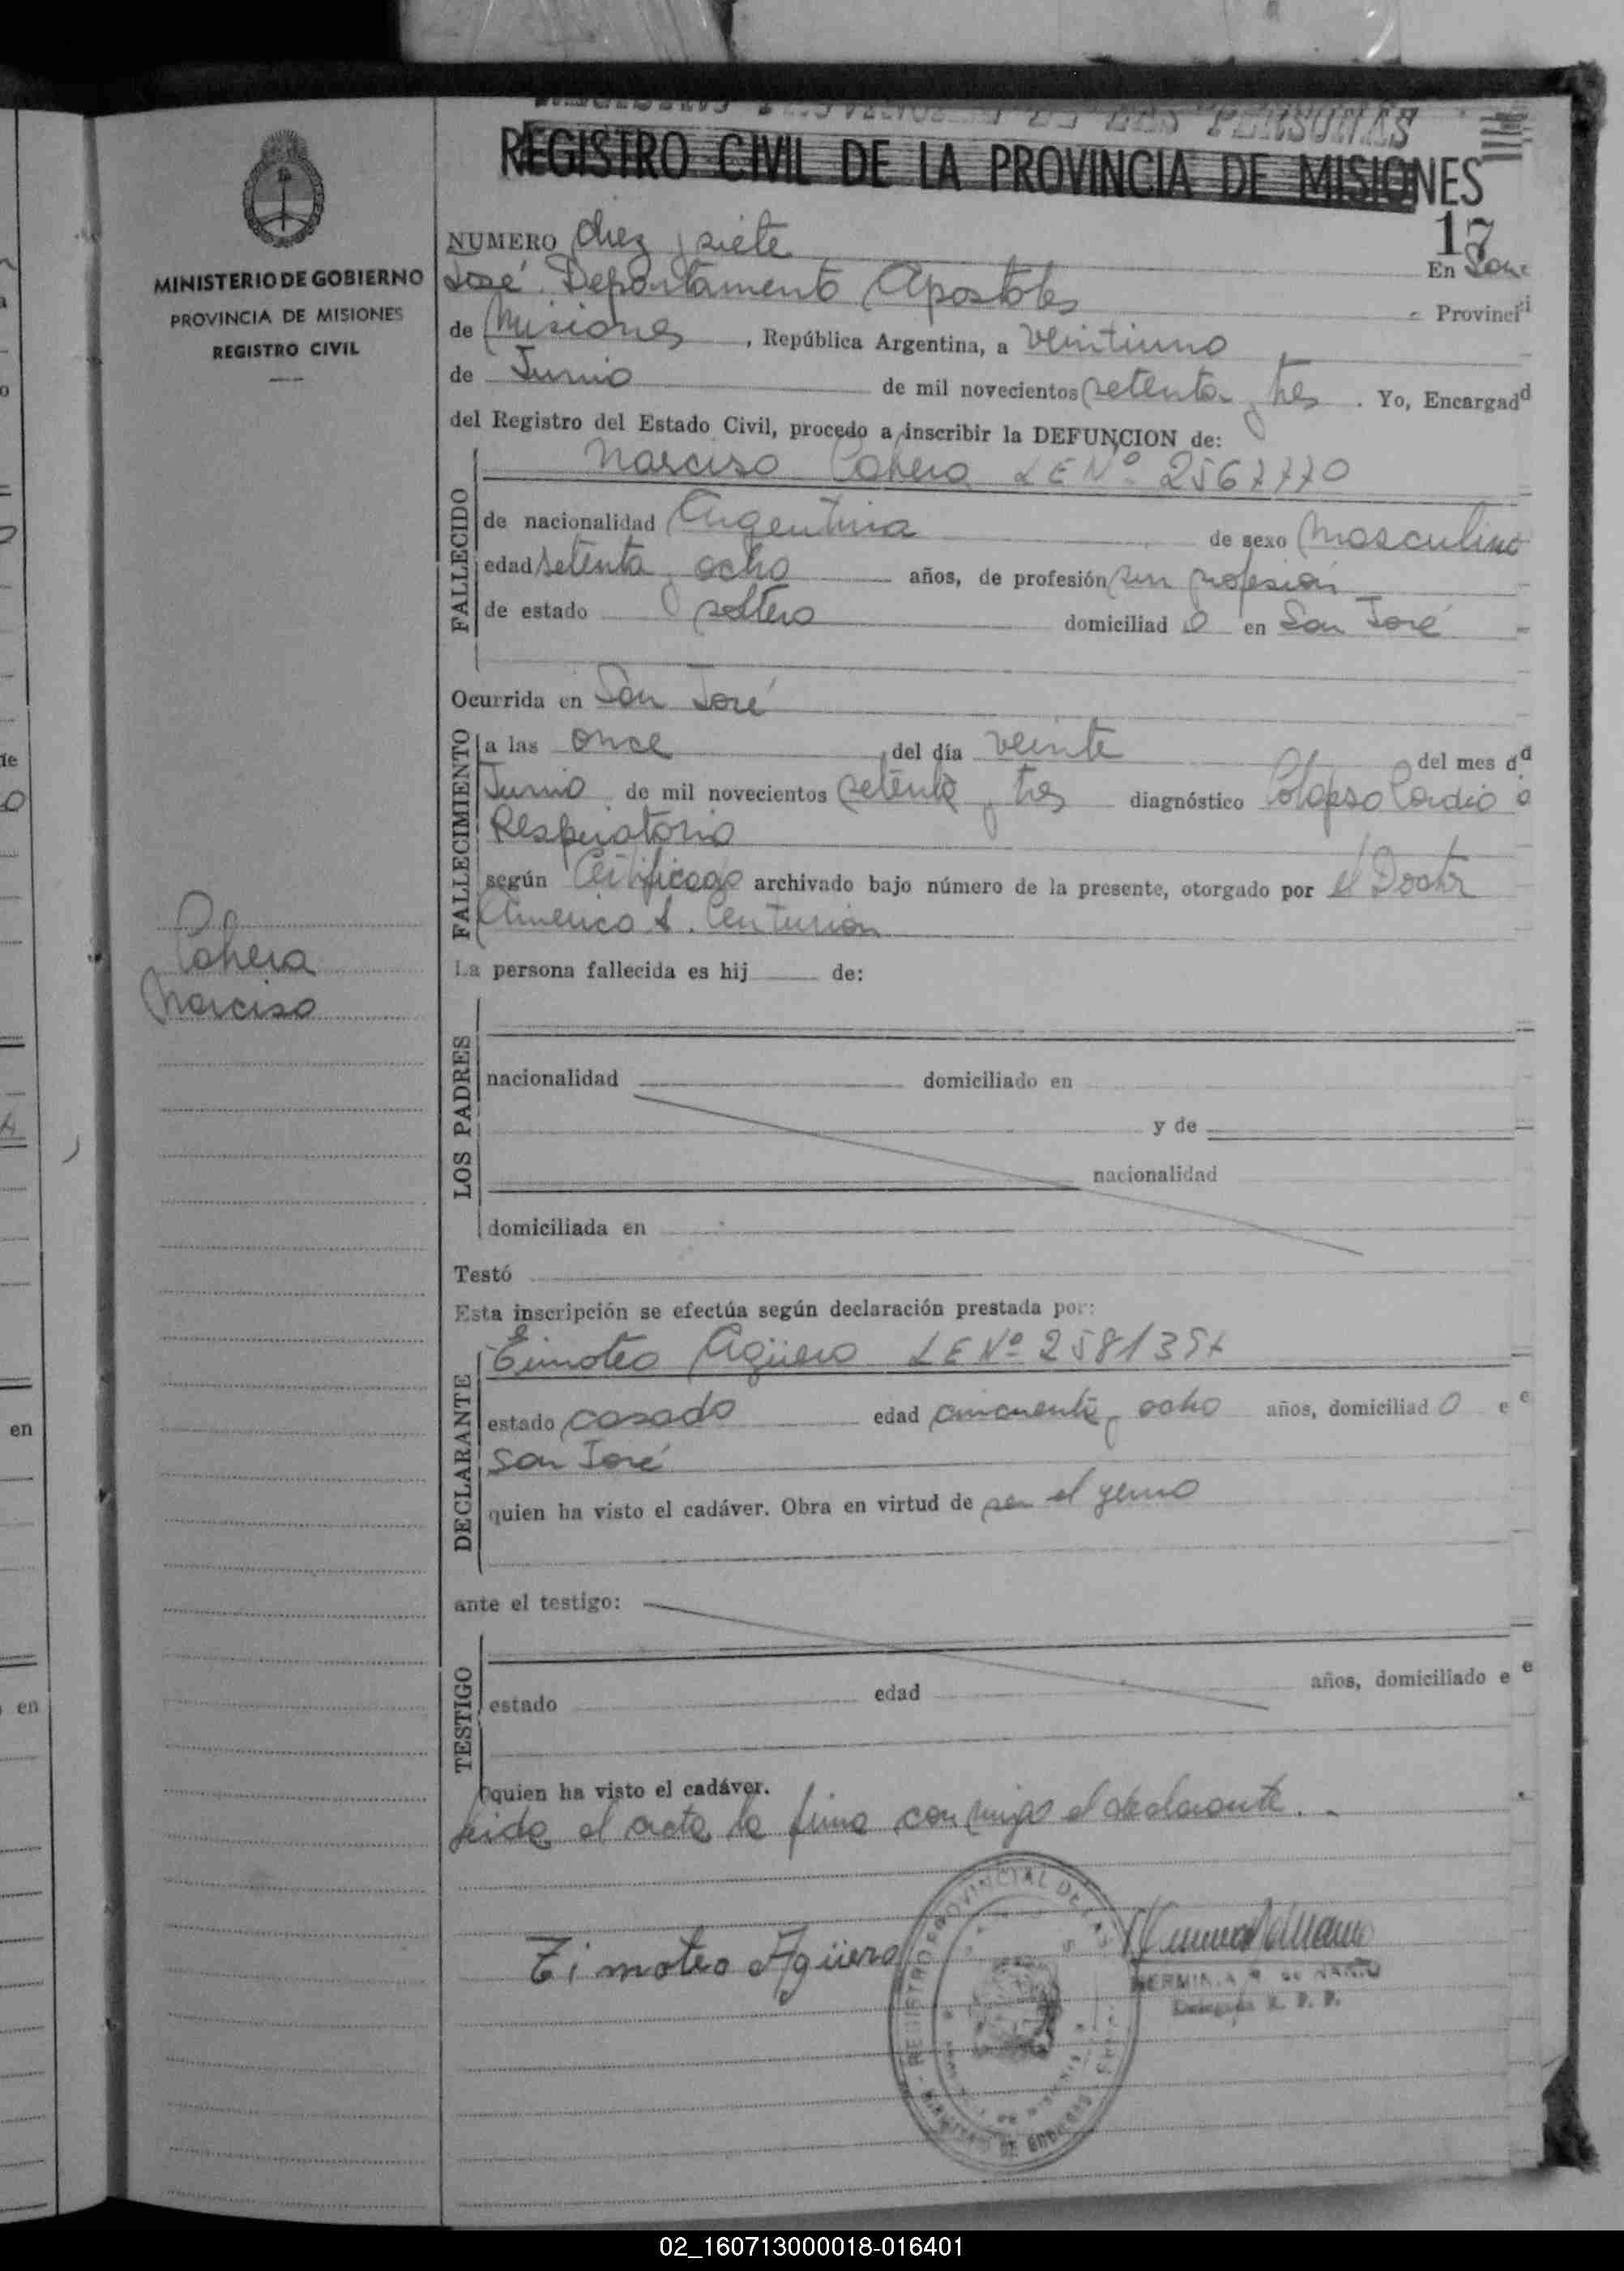 REGISTRO PROVINCIAL DE LAS PERSONAS
REGISTRO CIVIL DE LA PROVINCIA DE MISIONES
MINISTERIO DE GOBIERNO
PROVINCIA DE MISIONES
REGISTRO CIVIL
17
NUMERO diez y siete En San
José Departamento Apostoles Provinci
de Misiones, República Argentina, a veintiuno
de Junio de mil novecientos setenta y tres. Yo, Encargad
del Registro del Estado Civil, procedo a inscribir la DEFUNCION de:
FALLECIDO
Narciso Cabera LE Nº 2567770
de nacionalidad Argentina de sexo Masculino
edad setenta y ocho años, de profesión sin profesión
de estado soltero domiciliad o en San José
Ocurrida en San José
FALLECIMIENTO
a las once del día veinte del mes d
Junio de mil novecientos setenta y tres diagnóstico Colapso Cardio
Respiratorio
según Certificado archivado bajo número de la presente, otorgado por el Doctor
America A. Centurion
Cabera
Narciso
La persona fallecida es hij de:
LOS PADRES
nacionalidad domiciliado en
y de
nacionalidad
domiciliada en
Testó
Esta inscripción se efectúa según declaración prestada por:
DECLARANTE
Timoteo Agüero LE Nº 2581357
estado casado edad cincuenta y ocho años, domiciliad o e
San José
quien ha visto el cadáver. Obra en virtud de ser el yerno
ante el testigo:
TESTIGO
estado edad años, domiciliado e
quien ha visto el cadáver.
Leida el acta la firma conmigo el declarante.
Timoteo Agüero
REGISTRO PROVINCIAL DE LAS
02_160713000018-016401